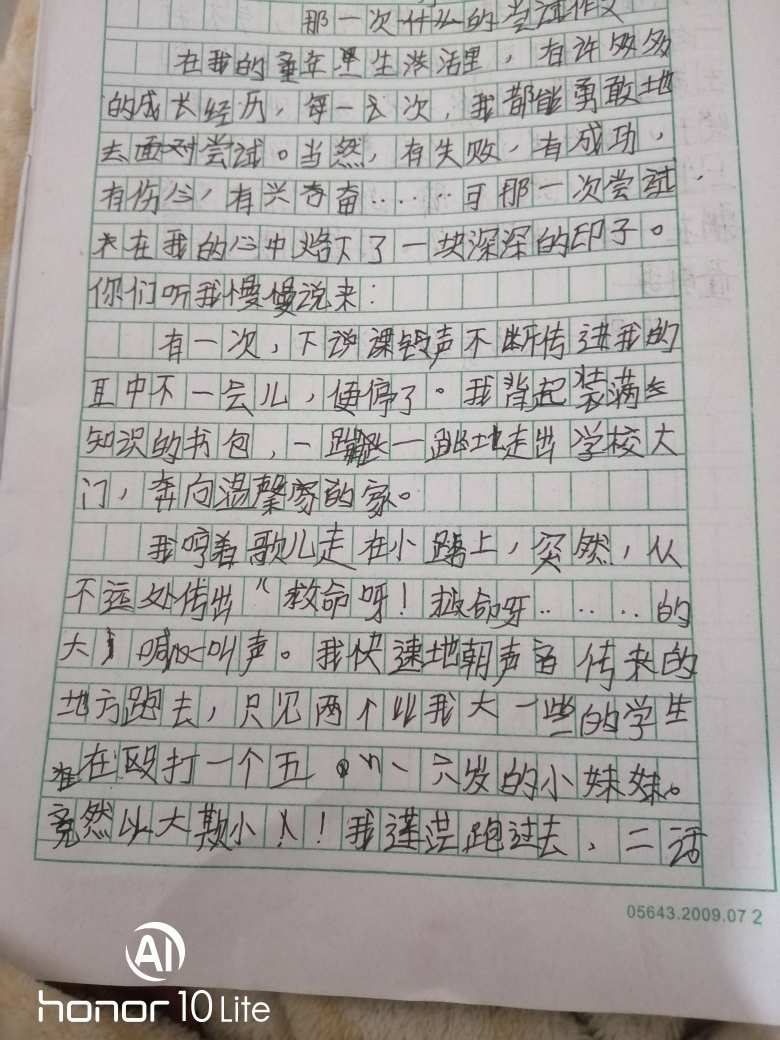 那一次什么的尝试作文
在我的童年里生活里，有许多多
的成长经历，每一次，我都能勇敢地
去面对尝试。当然，有失败，有成功，
有伤心，有兴奋……可那一次尝试
在我的心中烙下了一块深深的印子。
你们听我慢慢说来：
有一次，下课铃声不断传进我的
耳中不一会儿，便停了。我背起装满
知识的书包，一蹦一跳地走出学校大
门，奔向温馨的家。
我哼着歌儿走在小路上，突然，从
不远处传出“救命呀！救命呀……的
大喊叫声。我快速地朝声音传来的
地方跑去，只见两个比我大一些的学生
在殴打一个五、六岁的小妹妹。
竟然以大欺小！我连忙跑过去，二话
05643.2009.07 2
AI
honor 10 Lite